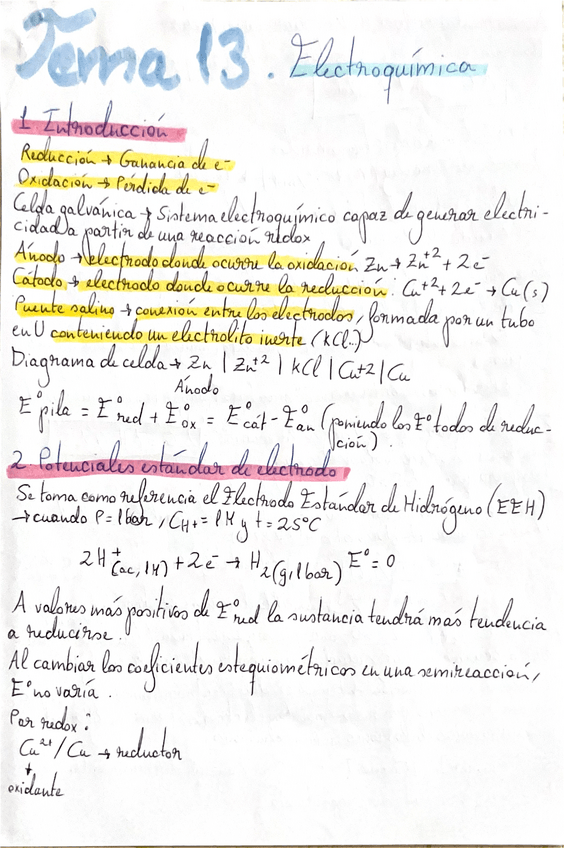 Tema 13. Electroquímica
1 Introducción
Reducción → Ganancia de e-
Oxidación → Pérdida de e-
Celda galvánica → Sistema electroquímico capaz de generar electri-
cidad a partir de una reacción redox
Ánodo → electrodo donde ocurre la oxidación Zn → Zn⁺² + 2e⁻
Cátodo → electrodo donde ocurre la reducción: Cu⁺² + 2e⁻ → Cu(s)
Puente salino → conexión entre los electrodos, formada por un tubo
en U conteniendo un electrolito inerte (KCl..)
Diagrama de celda → Zn | Zn⁺² | KCl | Cu+2 | Cu
Ánodo
E°pila = E°red + E°ox = E°cát - E°an (poniendo los E° todos de reduc-
ción).
2. Potenciales estándar de electrodo
Se toma como referencia el Electrodo Estándar de Hidrógeno (EEH)
→ cuando P = 1bar, C_H+ = 1M y t = 25°C
2H⁺(ac, 1M) + 2e⁻ → H₂(g, 1bar) E° = 0
A valores más positivos de E°red la sustancia tendrá más tendencia
a reducirse.
Al cambiar los coeficientes estequiométricos en una semireacción,
E° no varía.
Par redox:
Cu²⁺/Cu → reductor
↓
oxidante